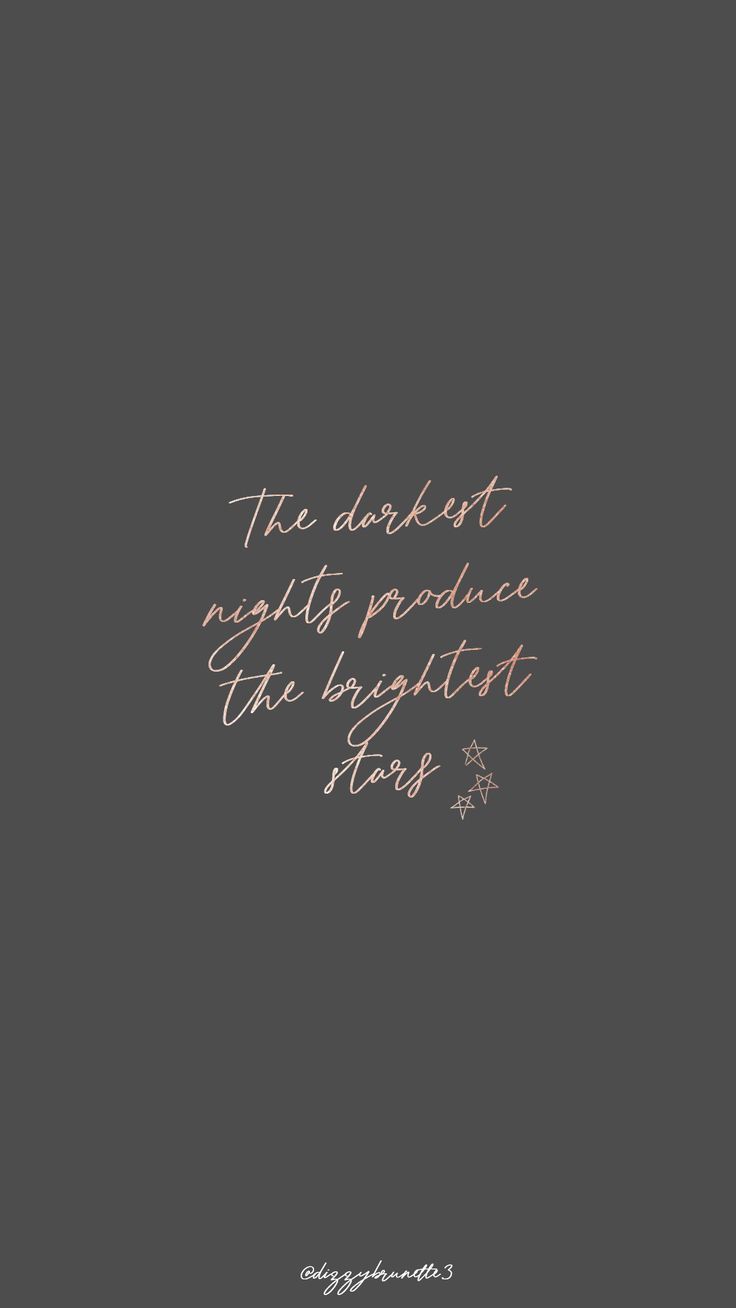 The darkest
nights produce
the brightest
stars
@dizzybrunette3